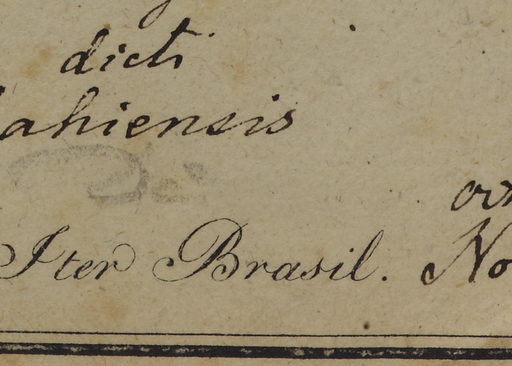 dicti
ahiensis
Iter Brasil. No